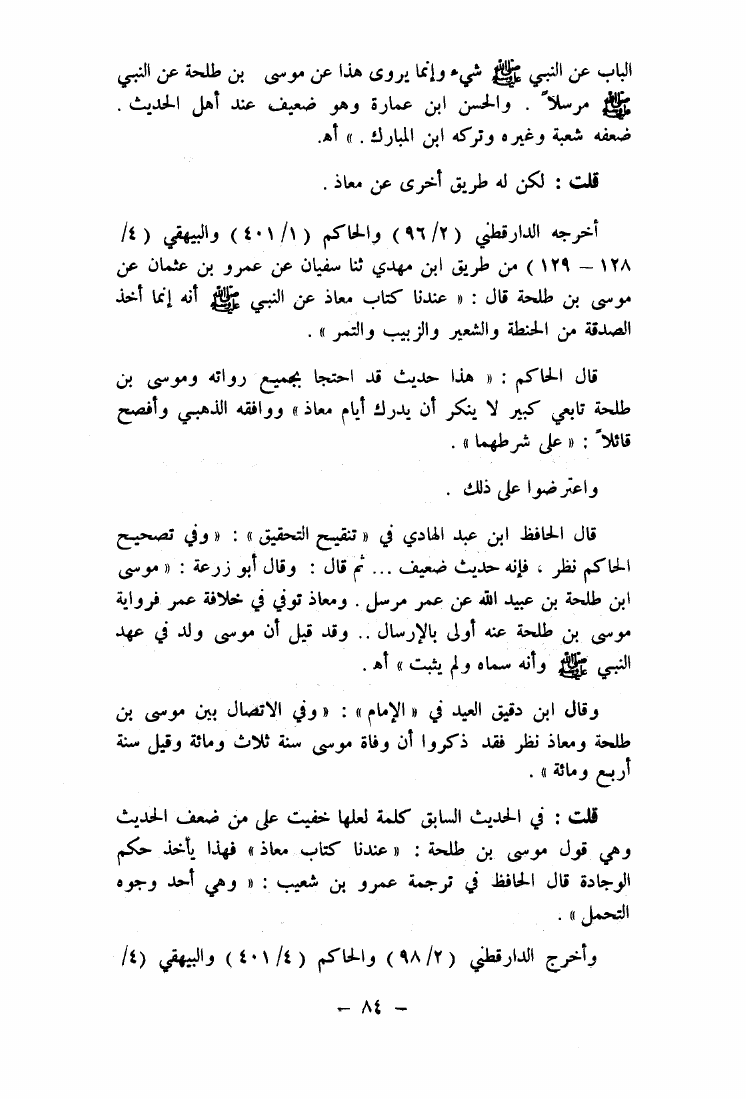 الباب عن النبي ﷺ شيء وإنما يروى هذا عن موسى بن طلحة عن النبي
ﷺ مرسلاً . والحسن ابن عمارة وهو ضعيف عند أهل الحديث .
ضعفه شعبة وغيره وتركه ابن المبارك . » أهـ.
قلت : لكن له طريق أخرى عن معاذ .
أخرجه الدارقطني ( ٢/ ٩٦ ) والحاكم ( ١/ ٤٠١ ) والبيهقي ( ٤/
١٢٨ – ١٢٩ ) من طريق ابن مهدي ثنا سفيان عن عمرو بن عثمان عن
موسى بن طلحة قال : « عندنا كتاب معاذ عن النبي ﷺ أنه إنما أخذ
الصدقة من الحنطة والشعير والزبيب والتمر » .
قال الحاكم : « هذا حديث قد احتجا بجميع رواته وموسى بن
طلحة تابعي كبير لا ينكر أن يدرك أيام معاذ » ووافقه الذهبي وأفصح
قائلاً : « على شرطهما » .
واعترضوا على ذلك .
قال الحافظ ابن عبد الهادي في « تنقيح التحقيق » : « وفي تصحيح
الحاكم نظر ، فإنه حديث ضعيف ... ثم قال : وقال أبو زرعة : « موسى
ابن طلحة بن عبيد الله عن عمر مرسل . ومعاذ توفي في خلافة عمر فرواية
موسى بن طلحة عنه أولى بالإرسال .. وقد قيل أن موسى ولد في عهد
النبي ﷺ وأنه سماه ولم يثبت » أهـ .
وقال ابن دقيق العيد في « الإمام » : « وفي الاتصال بين موسى بن
طلحة ومعاذ نظر فقد ذكروا أن وفاة موسى سنة ثلاث ومائة وقيل سنة
أربع ومائة » .
قلت : في الحديث السابق كلمة لعلها خفيت على من ضعف الحديث
وهي قول موسى بن طلحة : « عندنا كتاب معاذ » فهذا يأخذ حكم
الوجادة قال الحافظ في ترجمة عمرو بن شعيب : « وهي أحد وجوه
التحمل » .
وأخرج الدارقطني ( ٢/ ٩٨ ) والحاكم ( ٤/ ٤٠١ ) والبيهقي ( ٤/
– ٨٤ –